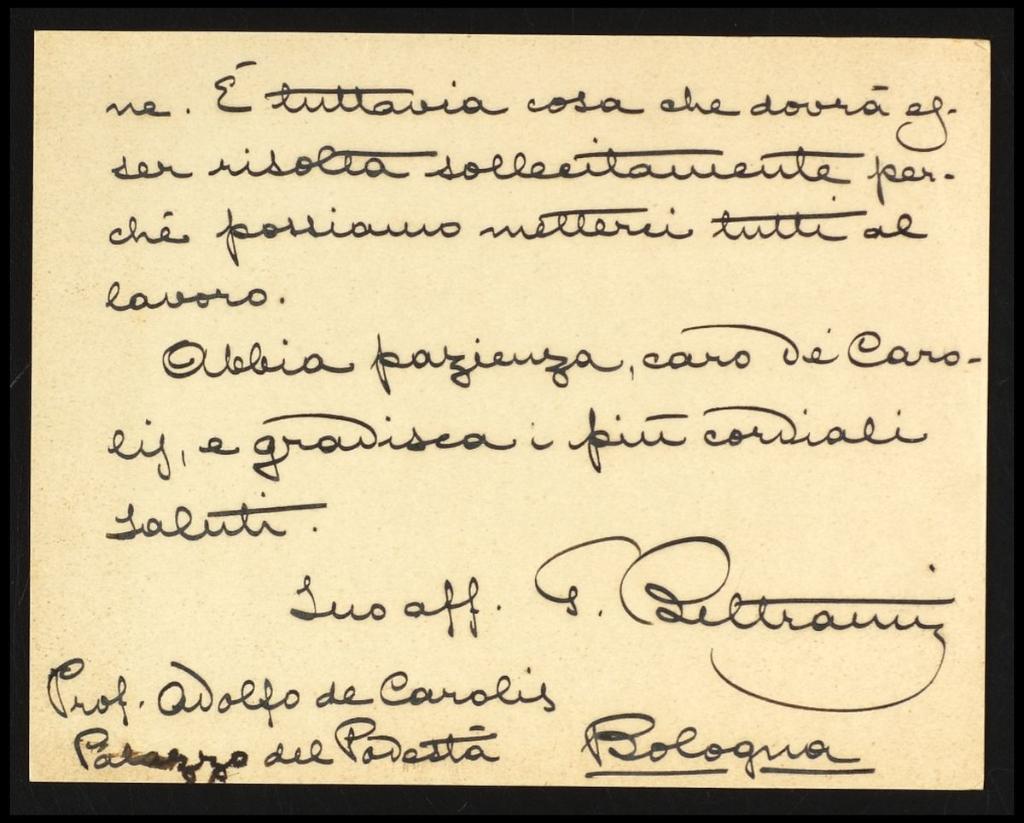 ne. É tuttavia cosa che dovrà es-
ser risolta sollecitamente per-
ché possiamo metterci tutti al
lavoro.
Abbia pazienza, caro de Caro-
lis, e gradisca i più cordiali
saluti.
Suo aff. Beltrami
Prof. Adolfo de Carolis
Palazzo del Podestà Bologna